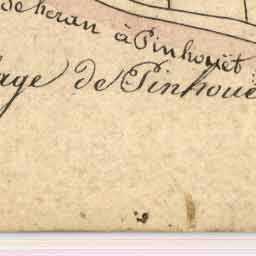 de heran à Pinhouët
lage de Pinhouë